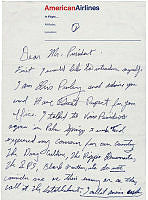 AmericanAirlines
In Flight...
Altitude;
Location;
①
Dear Mr. President.
First I would like to introduce myself.
I am Elvis Presley and admire you
and Have Great Respect for your
office. I talked to Vice President
Agnew in Palm Springs 3 weeks and
expressed my concern for our country.
The Drug Culture, the Hippie Elements,
The SDS, Black Panthers, etc do not
consider me as their enemy or as they
call it the Establishment. I call it America and